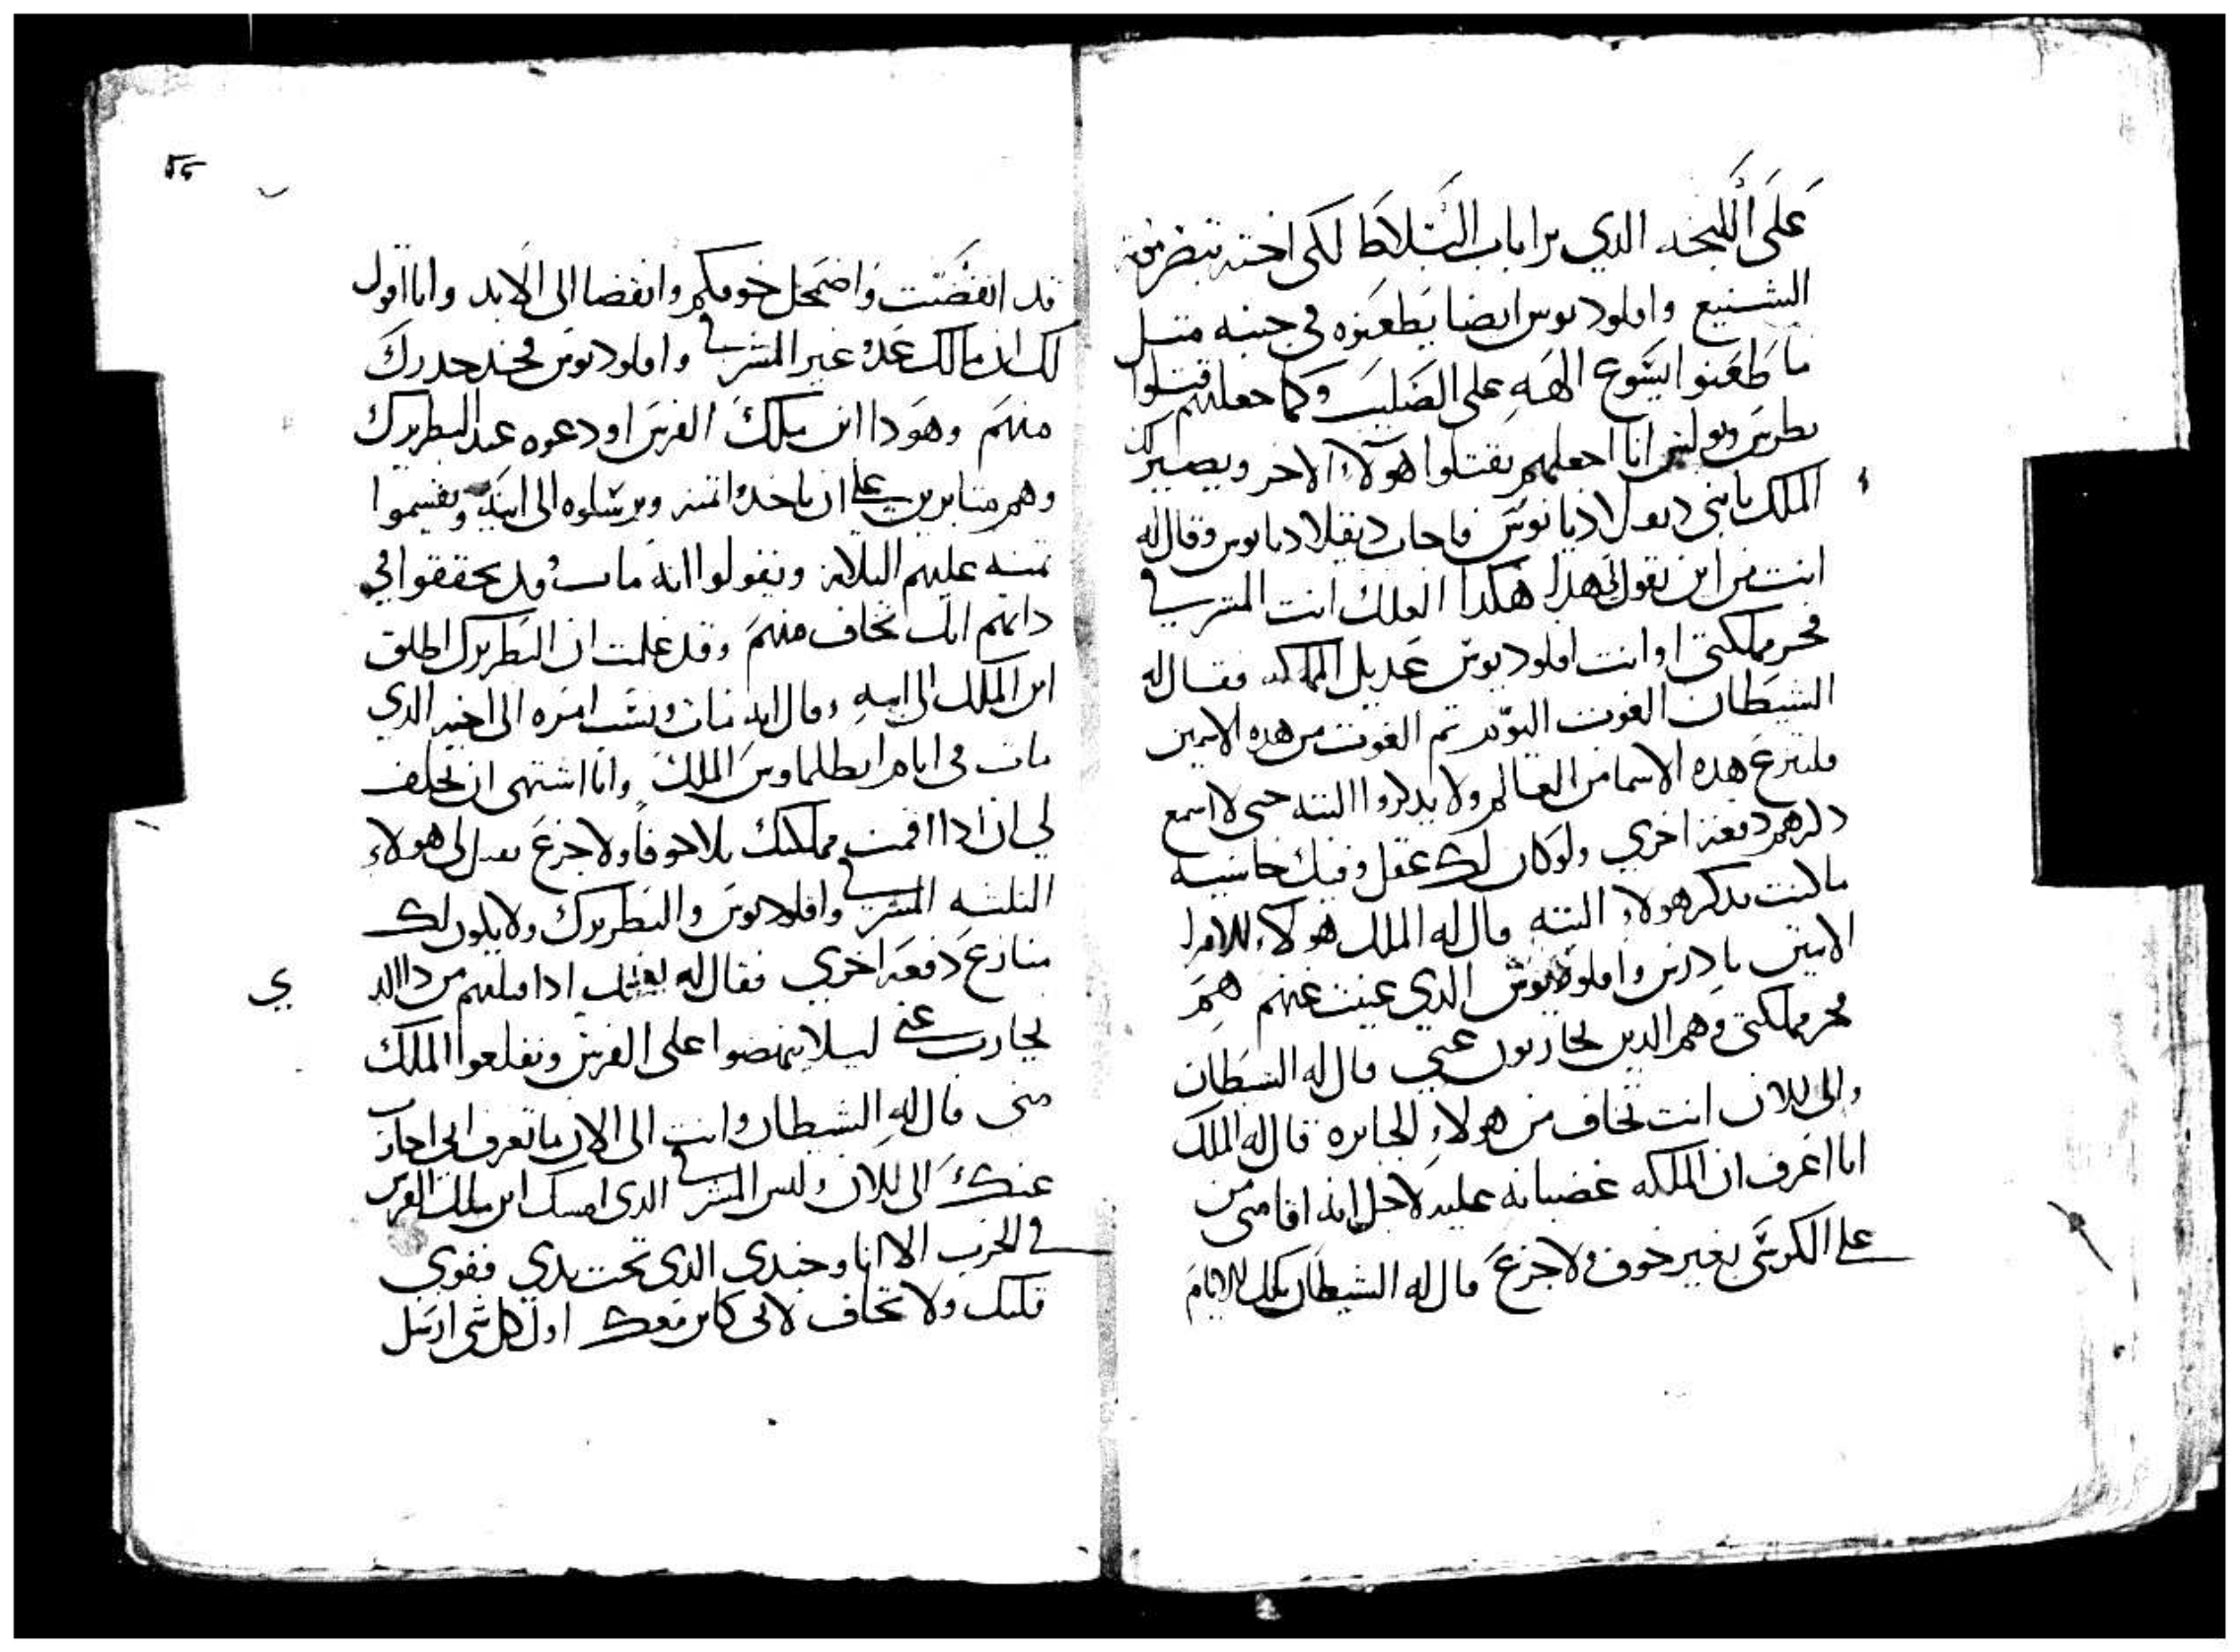 على اللبخه الدي برا باب البلاط لكى اخته تنضر موته
الشنيع واملوديوس ايضا يطعنوه في جنبه متل
ما طعنوا ايسوع الهه على الصليب وكما جعلتهم قتلوا
بطرس وبولس انا اجعلهم يقتلوا هولاء الاخر ويصير لك
الملك يابني دقلاديانوس فاجاب دقلاديانوس وقال له
انت من اين تقول لي هدا هكدا لعلك انت المشرقي
مملكتي او انت اقلوديوس عديل المملكه فقال له
الشيطان الغوت اليوم تم الغوت من هده الاسمين
فلتنزع هده الاسما من العالم ولا يدكروا البته حتى لا اسمع
دكرهم دفعة اخري ولو كان لك عقل وفيك
ما كنت تدكر هولاء البته قال له الملك هولاء
الاتنين تادرس واقلوديوس الدي عنهم هم
مملكتي وهم الدين يحاربون عني قال له الشيطان
والى الان انت تخاف من هولاء الجبابره قال له الملك
انا اعرف ان الملكه غضبانه عليه لاجل انه اقامني من
على الكرسي بغير خوف ولا جزع قال له الشيطان تلك الايام
٥٥
قد انقضت واضمحل خوفكم وانقضا الى الابد وانا اقول
لك ان مالك عدو غير المشرقي واقلوديوس فخد حدرك
منهم وهودا ابن ملك الفرس اودعوه عند البطريرك
وهم متابرين على ان ياخدوا تمنه ويرسلوه الى ابيه ويقسموا
تمنه عليهم التلاته ويقولوا انه مات وقد تحققوا في
داتهم انك تخاف منهم وقد علمت ان البطريرك اطلق
ابن الملك الى ابيه وقال انه مات ونسب امره الى اخيه الدي
مات في ايام ابطلماوس الملك وانا اشتهي ان تحلف
لي ان ادا اقمت مملكتك بلا خوفا ولا جزع تقتل لي هولاء
التلته المشرقي واقلوديوس والبطريرك ولا يكون لك
منازع دفعه اخري فقال له ادا قتلتهم من دا الدي
يحارب عني ليلا ينهضوا على الفرس ويقلعوا الملك
مني قال له الشيطان وانت الى الان ما تعرف اني احارب
عنك الى الان وليس المشرقي الدي امسك ابن ملك الفرس
في الحرب الا انا وجندي الدي تحت يدي فقوي
قلبك ولا تخاف لاني كاين معك اول كل شي ارسل